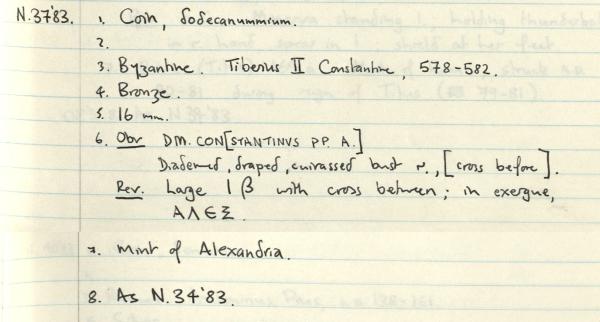 N.37'83. 1. Coin, dodecanummium.
2.
3. Byzantine. Tiberius II Constantine, 578-582.
4. Bronze
5. 16 mm.
6. Obv DM. CON[STANTINVS PP. A.]
Diademed, draped, cuirassed bust r., [cross before].
Rev. Large I β with cross between; in exergue,
ΑΛΕΞ.
7. Mint of Alexandria.
8. As N.34'83.